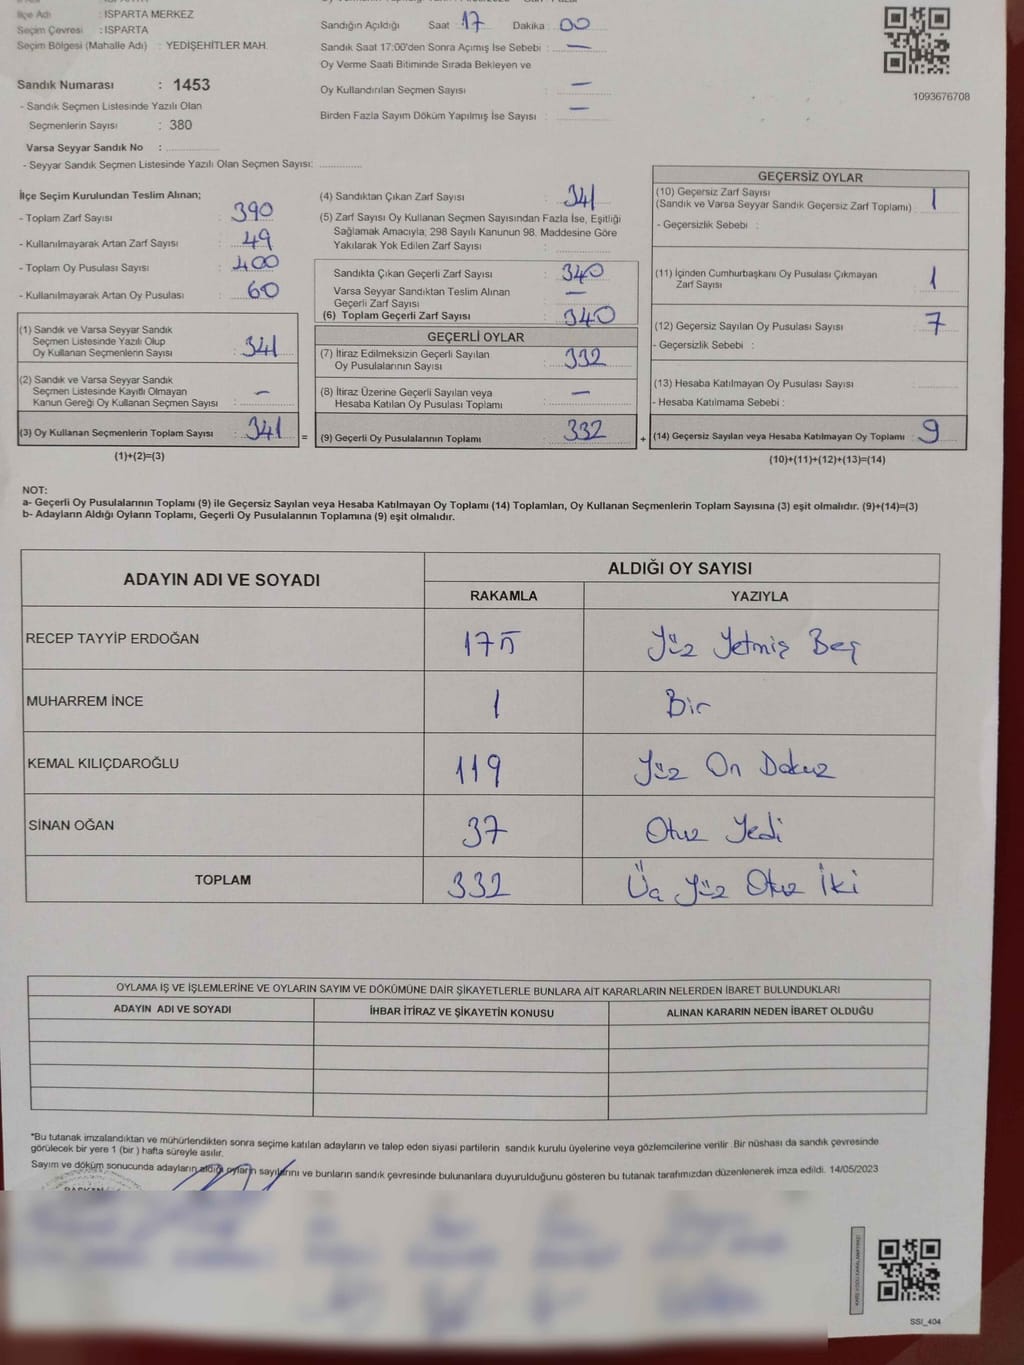 İlçe Adı : ISPARTA MERKEZ
Seçim Çevresi : ISPARTA
Seçim Bölgesi (Mahalle Adı) : YEDİŞEHİTLER MAH.
Sandık Numarası : 1453
- Sandık Seçmen Listesinde Yazılı Olan
Seçmenlerin Sayısı : 380
Varsa Seyyar Sandık No :
- Seyyar Sandık Seçmen Listesinde Yazılı Olan Seçmen Sayısı:
Sandığın Açıldığı Saat : 17 Dakika : 00
Sandık Saat 17:00'den Sonra Açımış İse Sebebi : —
Oy Verme Saati Bitiminde Sırada Bekleyen ve
Oy Kullandırılan Seçmen Sayısı : —
Birden Fazla Sayım Döküm Yapılmış İse Sayısı : —
1093676708
İlçe Seçim Kurulundan Teslim Alınan;
- Toplam Zarf Sayısı : 390
- Kullanılmayarak Artan Zarf Sayısı : 49
- Toplam Oy Pusulası Sayısı : 400
- Kullanılmayarak Artan Oy Pusulası : 60
(1) Sandık ve Varsa Seyyar Sandık
Seçmen Listesinde Yazılı Olup
Oy Kullanan Seçmenlerin Sayısı : 341
(2) Sandık ve Varsa Seyyar Sandık
Seçmen Listesinde Kayıtlı Olmayan
Kanun Gereği Oy Kullanan Seçmen Sayısı : —
(3) Oy Kullanan Seçmenlerin Toplam Sayısı : 341 =
(1)+(2)=(3)
(4) Sandıktan Çıkan Zarf Sayısı : 341
(5) Zarf Sayısı Oy Kullanan Seçmen Sayısından Fazla İse, Eşitliği
Sağlamak Amacıyla; 298 Sayılı Kanunun 98. Maddesine Göre
Yakılarak Yok Edilen Zarf Sayısı :
Sandıkta Çıkan Geçerli Zarf Sayısı : 340
Varsa Seyyar Sandıktan Teslim Alınan
Geçerli Zarf Sayısı : —
(6) Toplam Geçerli Zarf Sayısı : 340
GEÇERLİ OYLAR
(7) İtiraz Edilmeksizin Geçerli Sayılan
Oy Pusulalarının Sayısı : 332
(8) İtiraz Üzerine Geçerli Sayılan veya
Hesaba Katılan Oy Pusulası Toplamı : —
(9) Geçerli Oy Pusulalarının Toplamı : 332 +
GEÇERSİZ OYLAR
(10) Geçersiz Zarf Sayısı
(Sandık ve Varsa Seyyar Sandık Geçersiz Zarf Toplamı) : 1
- Geçersizlik Sebebi :
(11) İçinden Cumhurbaşkanı Oy Pusulası Çıkmayan
Zarf Sayısı : 1
(12) Geçersiz Sayılan Oy Pusulası Sayısı : 7
- Geçersizlik Sebebi :
(13) Hesaba Katılmayan Oy Pusulası Sayısı :
- Hesaba Katılmama Sebebi :
(14) Geçersiz Sayılan veya Hesaba Katılmayan Oy Toplamı : 9
(10)+(11)+(12)+(13)=(14)
NOT:
a- Geçerli Oy Pusulalarının Toplamı (9) ile Geçersiz Sayılan veya Hesaba Katılmayan Oy Toplamı (14) Toplamları, Oy Kullanan Seçmenlerin Toplam Sayısına (3) eşit olmalıdır. (9)+(14)=(3)
b- Adayların Aldığı Oyların Toplamı, Geçerli Oy Pusulalarının Toplamına (9) eşit olmalıdır.
ADAYIN ADI VE SOYADI
ALDIĞI OY SAYISI
RAKAMLA YAZIYLA
RECEP TAYYİP ERDOĞAN 175 Yüz Yetmiş Beş
MUHARREM İNCE 1 Bir
KEMAL KILIÇDAROĞLU 119 Yüz On Dokuz
SİNAN OĞAN 37 Otuz Yedi
TOPLAM 332 Üç Yüz Otuz İki
OYLAMA İŞ VE İŞLEMLERİNE VE OYLARIN SAYIM VE DÖKÜMÜNE DAİR ŞİKAYETLERLE BUNLARA AİT KARARLARIN NELERDEN İBARET BULUNDUKLARI
ADAYIN ADI VE SOYADI İHBAR İTİRAZ VE ŞİKAYETİN KONUSU ALINAN KARARIN NEDEN İBARET OLDUĞU
*Bu tutanak imzalandıktan ve mühürlendikten sonra seçime katılan adayların ve talep eden siyasi partilerin sandık kurulu üyelerine veya gözlemcilerine verilir. Bir nüshası da sandık çevresinde
görülecek bir yere 1 (bir ) hafta süreyle asılır.
Sayım ve döküm sonucunda adayların aldığı oyların sayılarını ve bunların sandık çevresinde bulunanlara duyurulduğunu gösteren bu tutanak tarafımızdan düzenlenerek imza edildi. 14/05/2023
BAŞKAN
SSI_404